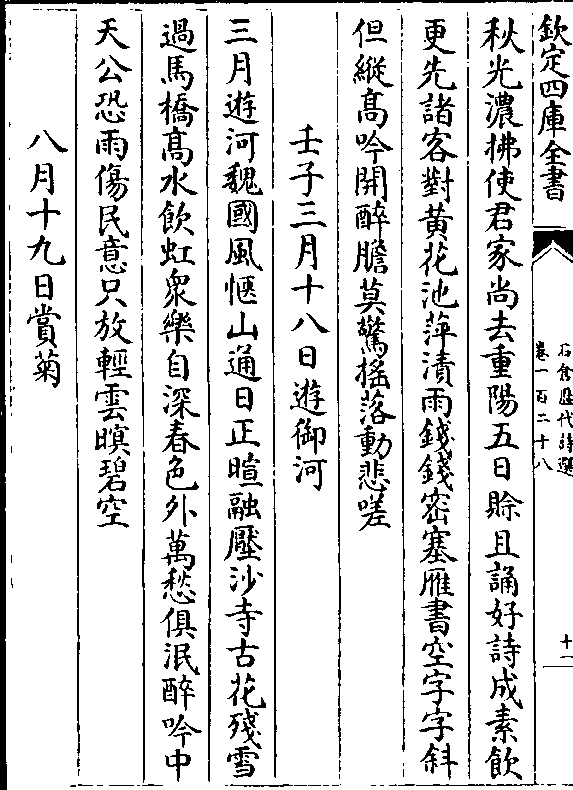 欽定四庫全書
石倉歷代詩選
卷一百二十八
十一
秋光濃拂使君家尚去重陽五日賒且誦好詩成素飲
更先諸客對黃花池萍漬雨錢錢密塞雁書空字字斜
但縱高吟開醉膽莫驚搖落動悲嗟
壬子三月十八日遊御河
三月遊河魏國風愜山通日正暄融壓沙寺古花殘雪
過馬橋高水飲虹衆樂自深春色外萬愁俱泯醉吟中
天公恐雨傷民意只放輕雲暝碧空
八月十九日賞菊